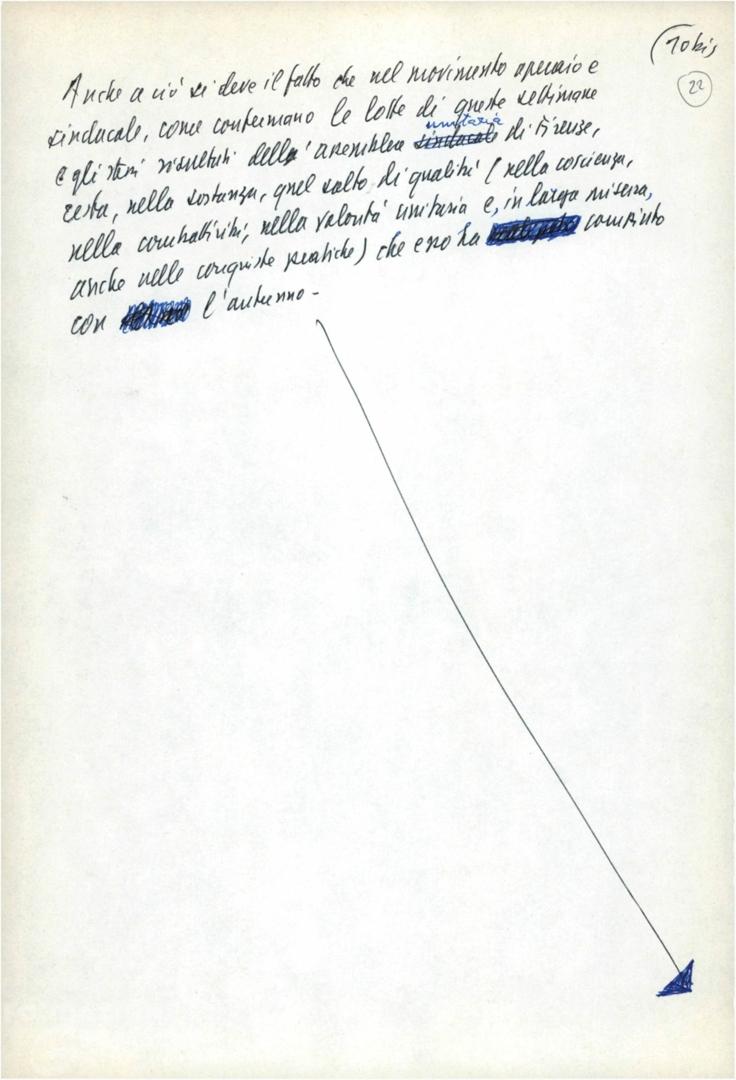 (10 bis
22
Anche a ciò si deve il fatto che nel movimento operaio e
sindacale, come confermano le lotte di queste settimane
unitaria
e gli stessi risultati della assemblea sindacale di Firenze,
resta, nella sostanza, quel salto di qualità (nella coscienza,
nella combattività, nella volontà unitaria e, in larga misura,
anche nelle conquiste pratiche) che esso ha compiuto
con l'autunno -